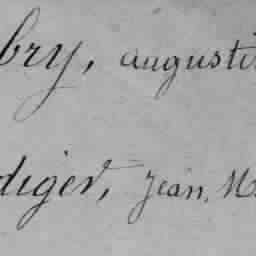 bry, augusti
diger, Jean, M